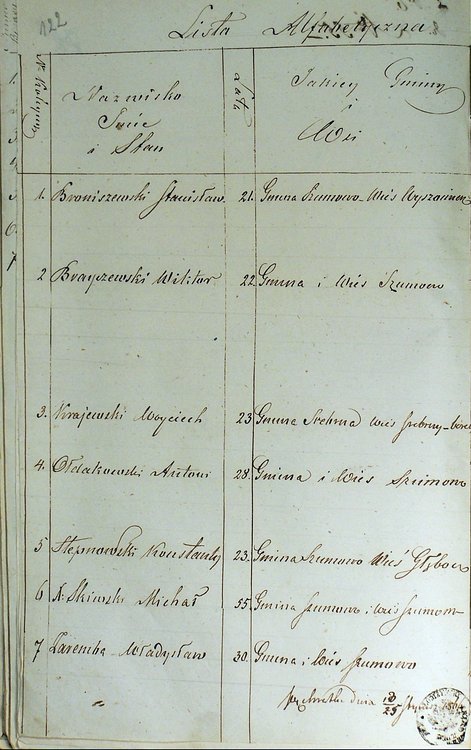 122
Lista Alfabetyczna
N Kolejny
Nazwisko
Imie
i Stan
Lata
Jakiey Gminy
i
Wsi
1. Broniszewski Stanisław 21. Gmina Szumowo Wieś
2 Brayczewski Wiktor 22 Gmina i Wieś Szumowo
3. Krajewski Woyciech 23 Gmina Wieś
4. Ołdakowski Antoni 28. Gmina i Wieś Szumowo
5 Stepnowski Konstanty 23. Gmina Szumowo Wieś
6 Michał 55. Gmina Szumowo i Wieś
7 Zaremba Władysław 30. Gmina i Wieś Szumowo
dnia 13/25